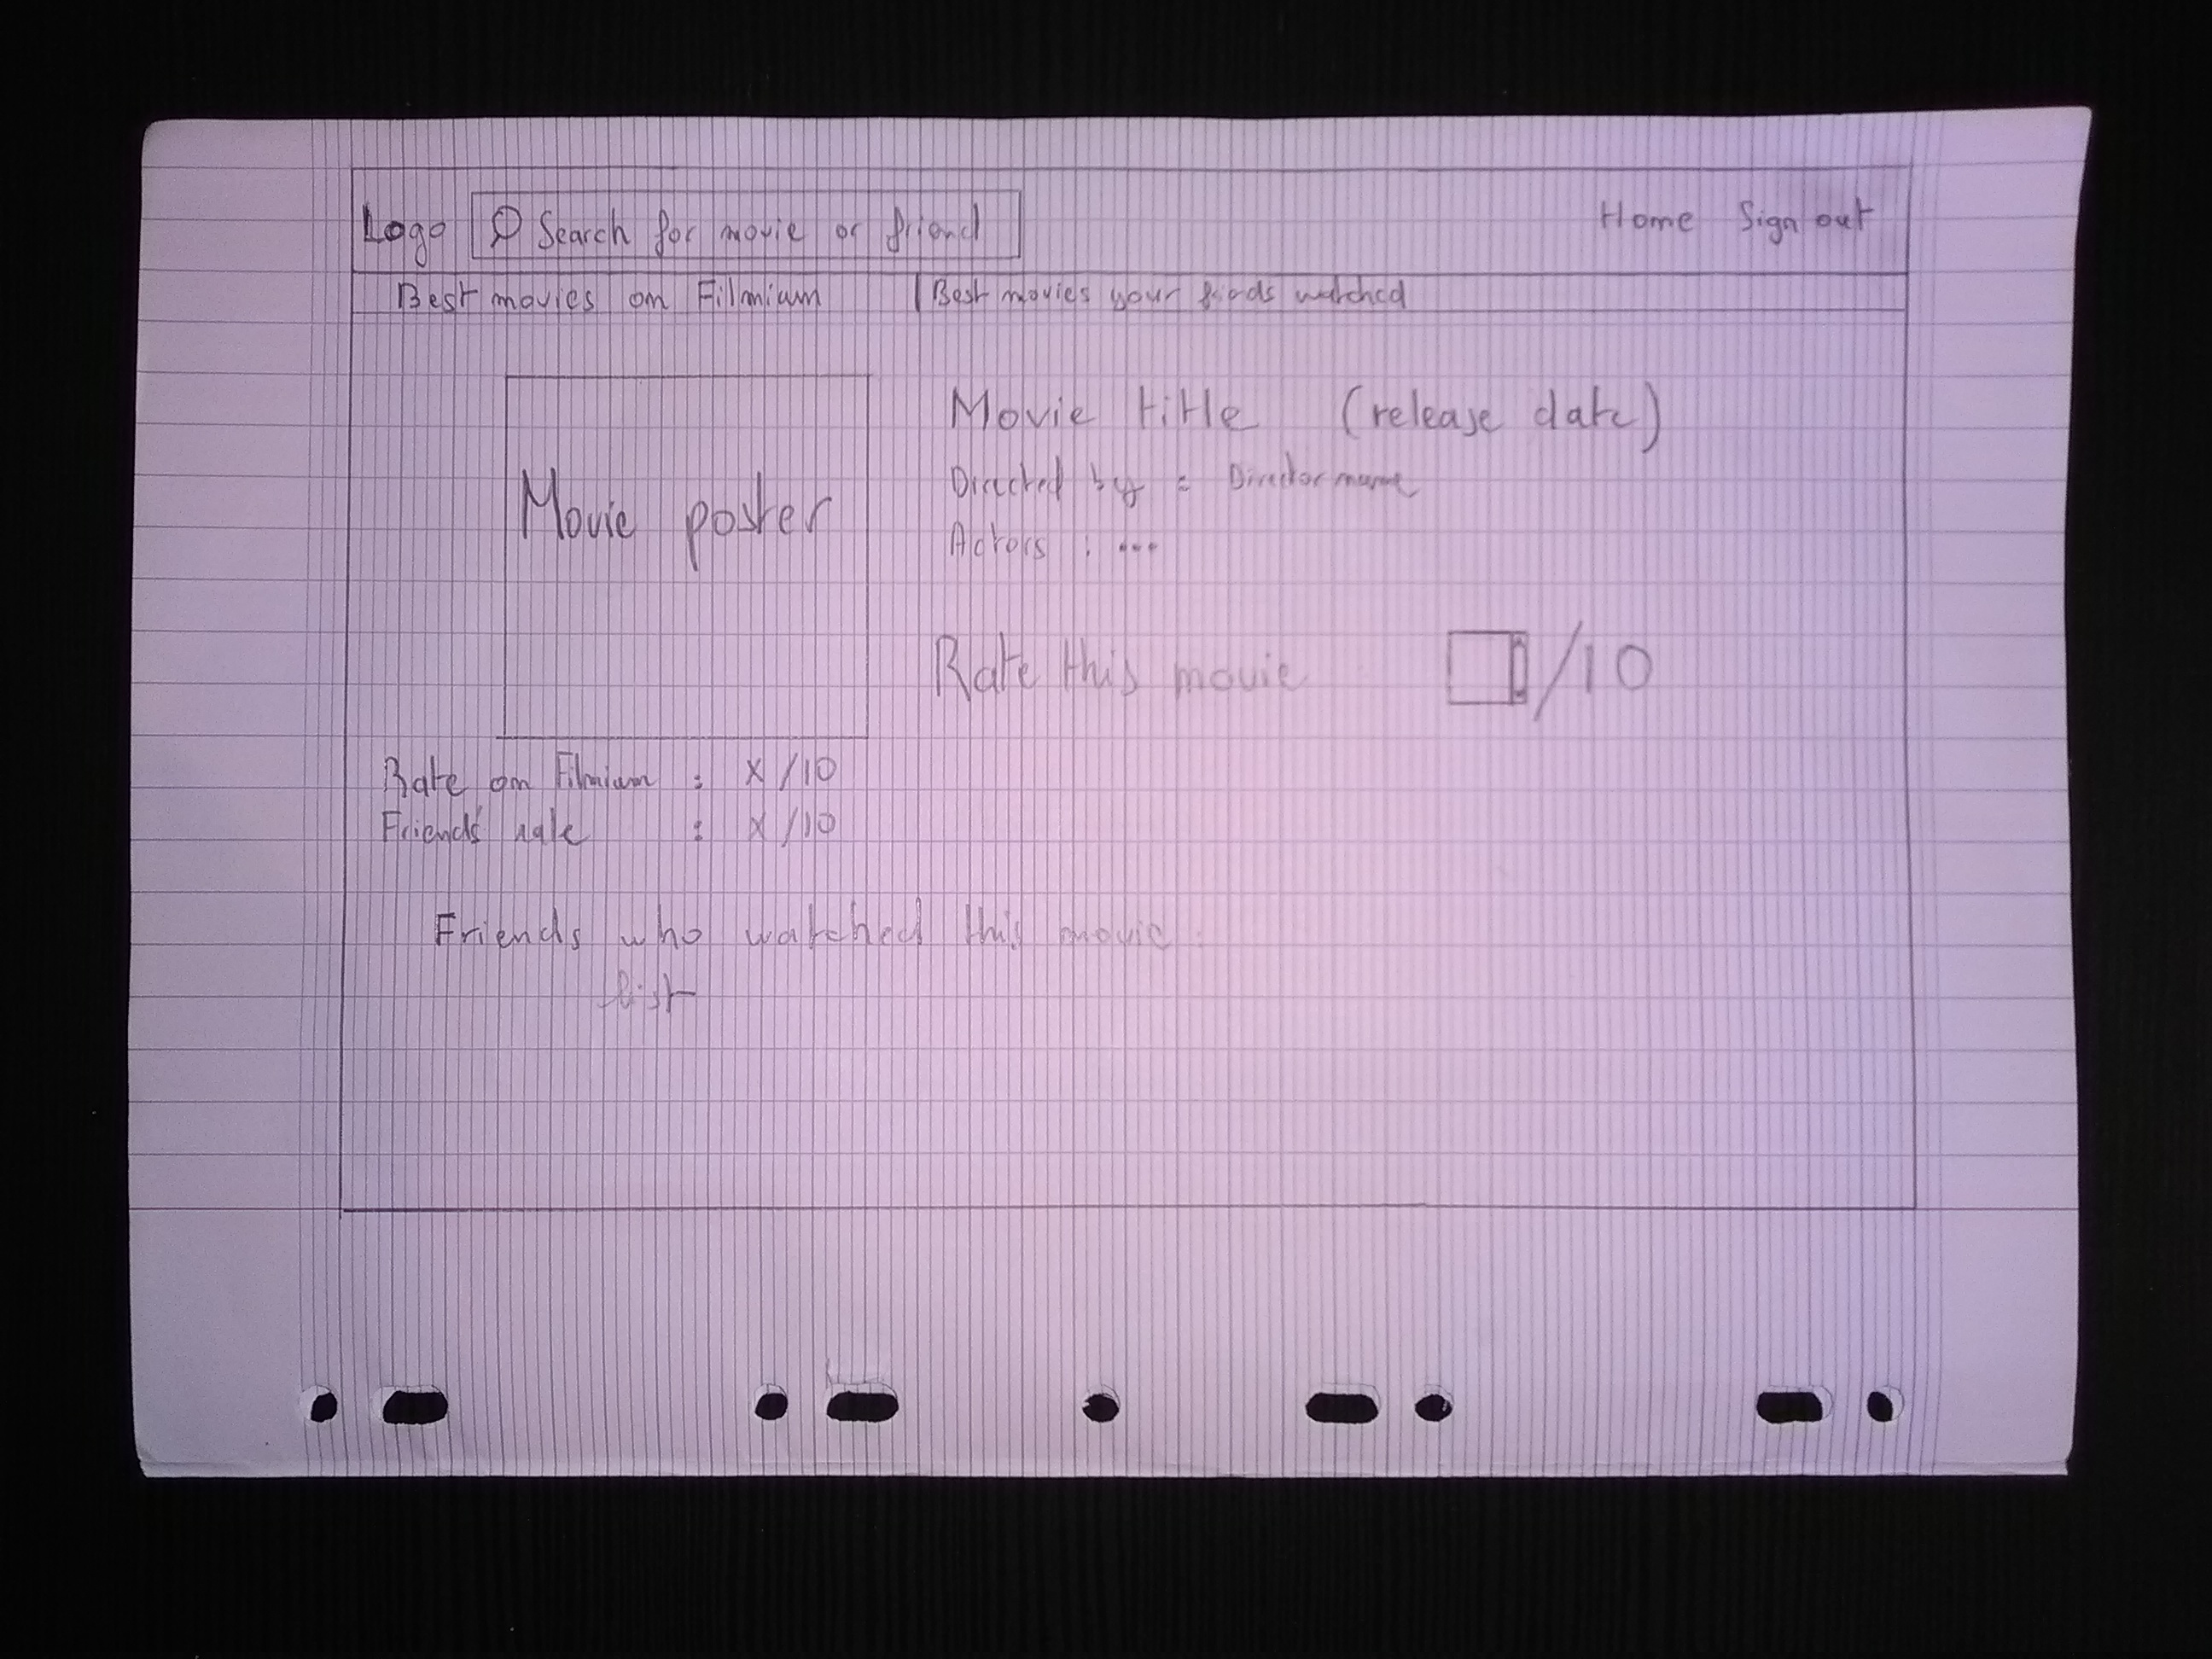 Logo Search for movie or friend Home Sign out
Best movies on Filmium | Best movies your friends watched
Movie title (release date)
Directed by : Director name
Actors : ...
Movie poster
Rate this movie /10
Rate on Filmium : X /10
Friends' rate : X /10
Friends who watched this movie :
list